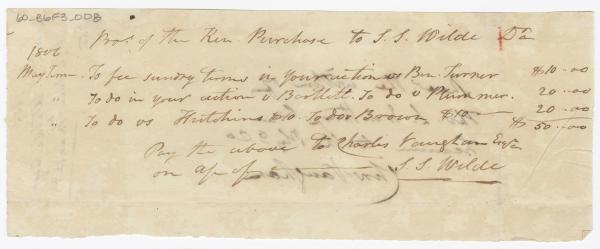 60_B6F3_DDB
Pro.s of the Ken Purchase to S. S. Wilde Dr
1806
May Term - To fee sundry terms in your action vs Ben. Turner $10..00
" To do in your action v Bartlett. To do v Plummer. 20..00
" To do vs Hutchins $10. To do v Brown $10 20..00
$50..00
Pay the above to Charles Vaughan Esqr
on a/c of S. S. Wilde